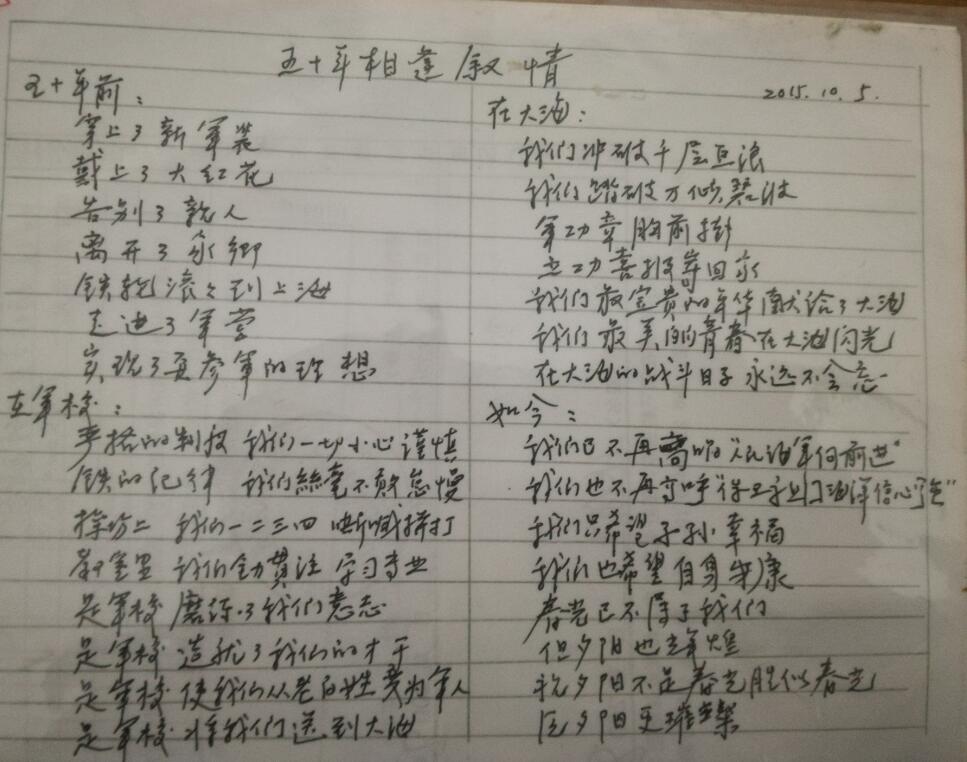 五十年相逢叙情
2015.10.5.
五十年前：
穿上了新軍装
戴上了大红花
告别了親人
离开了家鄉
铁轮滚々到上海
走进了軍营
实现了真参軍的理想
在軍校：
严格的制度 我们一切小心謹慎
铁的纪律 我们絲毫不敢怠慢
操场上 我们一二三四
教室里 我们全力貫注 学习专业
是軍校 磨练了我们意志
是軍校 造就了我们的才干
是軍校 使我们从老百姓变为军人
是军校 将我们送到大海
在大海：
我们冲破千层巨浪
我们踏破万倾碧波
军功章胸前掛
立功喜报寄回家
我们最宝贵的年华献给了大海
我们最美的青春在大海闪光
在大海的战斗日子永远不会忘
如今：
我们已不再高唱“人民海軍向前进”
我们也不再高呼“保卫祖国海洋信心坚”
我们只希望子孙幸福
我们也希望自身安康
春光已不属于我们
但夕阳也辉煌
祝夕阳不是春光胜似春光
愿夕阳更璀璨